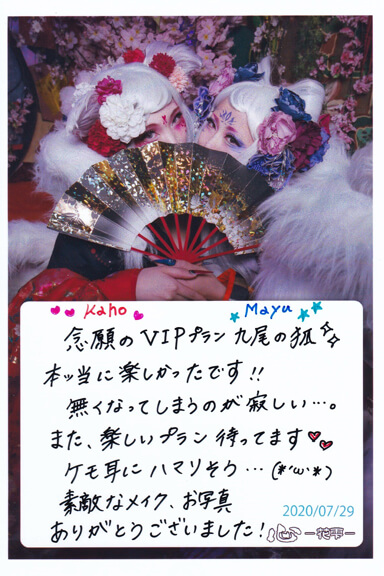 Kaho Mayu
念願のVIPプラン 九尾の狐
本ッ当に楽しかったです!!
無くなってしまうのが寂しい…。
また、楽しいプラン待ってます
ケモ耳にハマりそう…(*'ω'*)
素敵なメイク、お写真
ありがとうございました!
2020/07/29
－花雫－